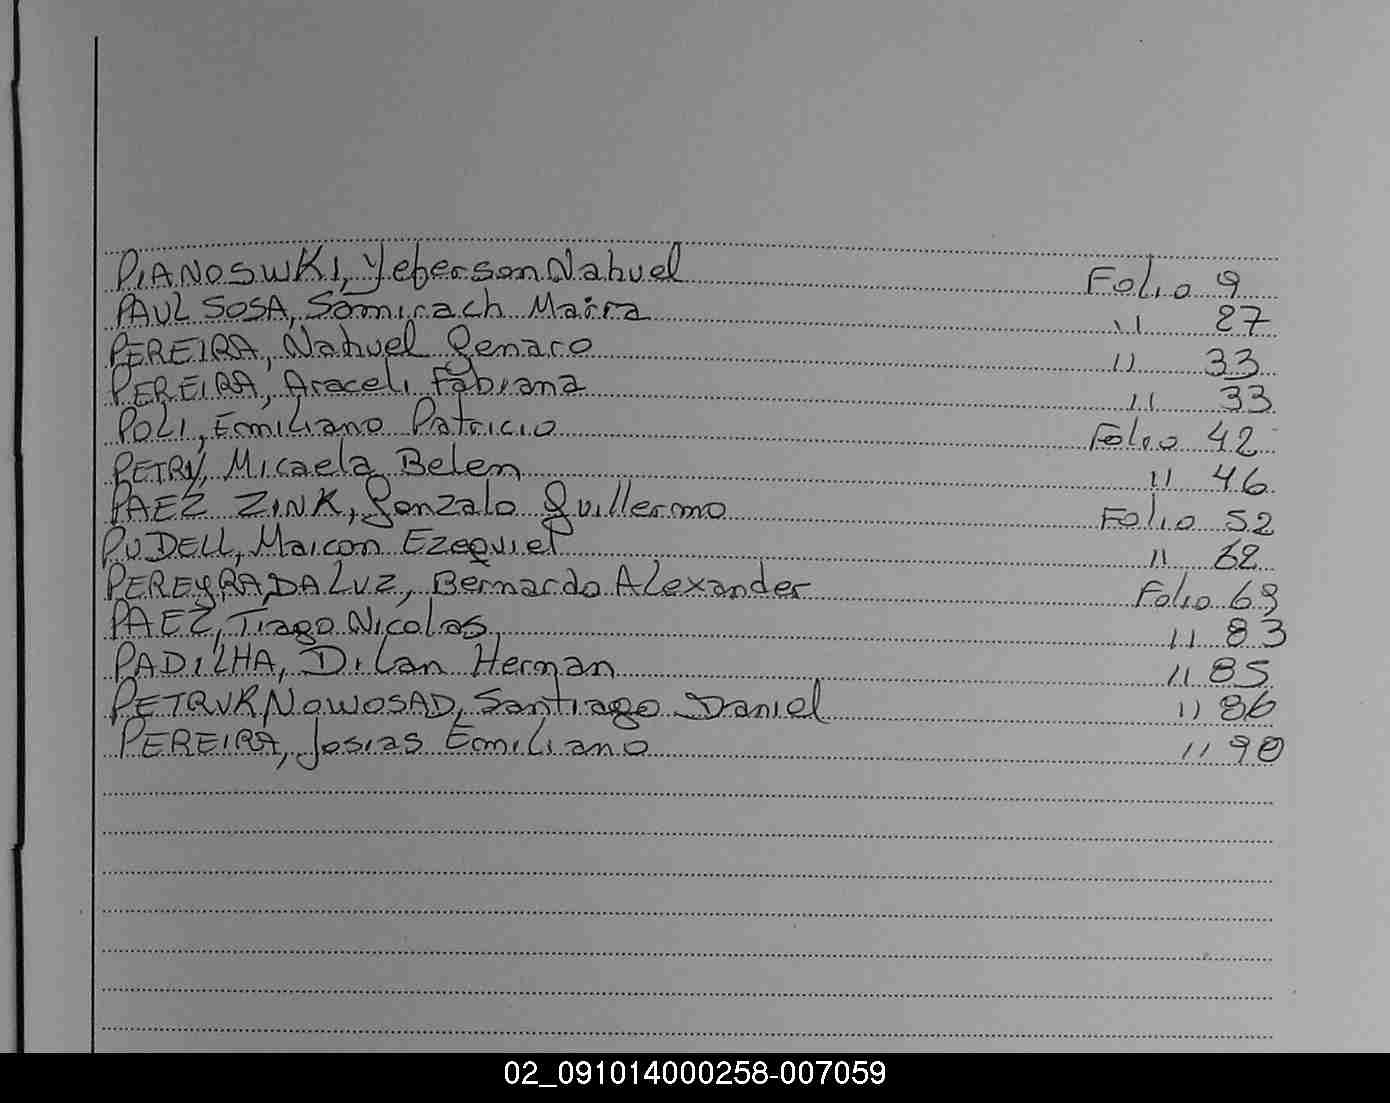 PIANOSWKI, Yeferson Nahuel Folio 9
PAUL SOSA, Samirach Maira 11 27
PEREIRA, Nahuel Genaro 11 33
PEREIRA, Araceli Fabiana 11 33
POLI, Emiliano Patricio Folio 42
PETRY, Micaela Belem 11 46
PAEZ ZINK, Gonzalo Guillermo Folio 52
PUDELL, Maicon Ezequiel 11 62
PEREYRA DA LUZ, Bernardo Alexander Folio 69
PAEZ, Tiago Nicolas 11 83
PADILHA, Dilan Hernan 11 85
PETRUK NOWOSAD, Santiago Daniel 11 86
PEREIRA, Josias Emiliano 11 90
02_091014000258-007059